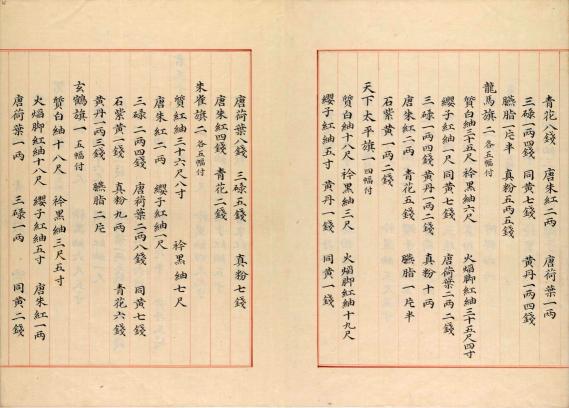 青花八錢 唐朱紅二兩 唐荷葉一兩
三碌一兩四錢 同黃七錢 黃丹一兩四錢
臙脂一片半 真粉五兩五錢
龍馬旗二 各五幅付
質白紬三十五尺 衿黑紬六尺 火焰脚紅紬三十五尺四寸
纓子紅紬四寸 同黃七錢 唐荷葉二兩二錢
三碌一兩四錢 黃丹一兩二錢 真粉十兩
唐朱紅二兩 青花五錢 臙脂一片半
石紫黃一兩二錢
天下太平旗一 四幅付
質白紬十八尺 衿黑紬三尺 火焰脚紅紬十九尺
纓子紅紬五寸 黃丹一錢 同黃一錢
唐荷葉八錢 三碌五錢 真粉七錢
唐朱紅四錢 青花二錢
朱雀旗二 各五幅付
質紅紬三十六尺八寸 衿黑紬七尺
唐朱紅二兩 纓子紅紬一尺
三碌二兩四錢 唐荷葉二兩八錢 同黃七錢
石紫黃一錢 真粉九兩 青花六錢
黃丹一兩三錢 臙脂二片
玄鶴旗一 五幅付
質白紬十八尺 衿黑紬三尺五寸
火焰脚紅紬十八尺 纓子紅紬五寸 唐朱紅一兩
唐荷葉一兩 三碌一兩 同黃二錢